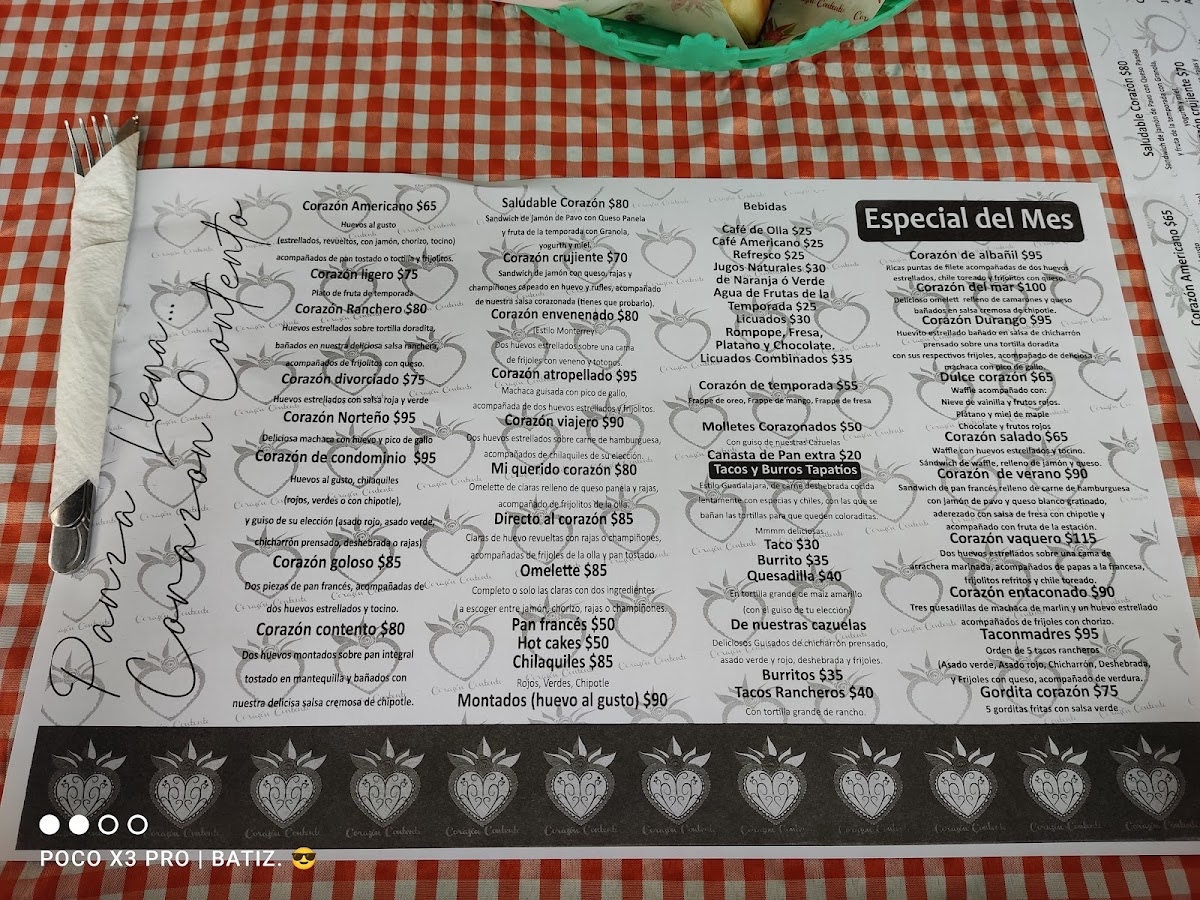 Panza llena...
Corazón Contento
Corazón Americano $65
Huevos al gusto
(estrellados, revueltos, con jamón, chorizo, tocino)
acompañados de pan tostado o tortilla y frijolitos.
Corazón ligero $75
Plato de fruta de temporada
Corazón Ranchero $80
Huevos estrellados sobre tortilla doradita,
bañados en nuestra deliciosa salsa ranchera,
acompañados de frijolitos con queso.
Corazón divorciado $75
Huevos estrellados con salsa roja y verde
Corazón Norteño $95
Deliciosa machaca con huevo y pico de gallo
Corazón de condominio $95
Huevos al gusto, chilaquiles
(rojos, verdes o con chipotle),
y guiso de su elección (asado rojo, asado verde,
chicharrón prensado, deshebrada o rajas)
Corazón goloso $85
Dos piezas de pan francés, acompañadas de
dos huevos estrellados y tocino.
Corazón contento $80
Dos huevos montados sobre pan integral
tostado en mantequilla y bañados con
nuestra delicisa salsa cremosa de chipotle.
Saludable Corazón $80
Sandwich de Jamón de Pavo con Queso Panela
y fruta de la temporada con Granola,
yogurth y miel.
Corazón crujiente $70
Sandwich de jamón con queso, rajas y
champiñones capeado en huevo y rufles, acompañado
de nuestra salsa corazonada (tienes que probarlo).
Corazón envenenado $80
(Estilo Monterrey)
Dos huevos estrellados sobre una cama
de frijoles con veneno y totopos.
Corazón atropellado $95
Machaca guisada con pico de gallo,
acompañada de dos huevos estrellados y frijolitos.
Corazón viajero $90
Dos huevos estrellados sobre carne de hamburguesa,
acompañados de chilaquiles de su elección.
Mi querido corazón $80
Omelette de claras relleno de queso panela y rajas,
acompañado de frijolitos de la olla.
Directo al corazón $85
Claras de huevo revueltas con rajas o champiñones,
acompañadas de frijoles de la olla y pan tostado.
Omelette $85
Completo o solo las claras con dos ingredientes
a escoger entre jamón, chorizo, rajas o champiñones.
Pan francés $50
Hot cakes $50
Chilaquiles $85
Rojos, Verdes, Chipotle
Montados (huevo al gusto) $90
Bebidas
Café de Olla $25
Café Americano $25
Refresco $25
Jugos Naturales $30
de Naranja ó Verde
Agua de Frutas de la
Temporada $25
Licuados $30
Rompope, Fresa,
Platano y Chocolate.
Licuados Combinados $35
Corazón de temporada $55
Frappe de oreo, Frappe de mango, Frappe de fresa
Molletes Corazonados $50
Con guiso de nuestras Cazuelas
Canasta de Pan extra $20
Tacos y Burros Tapatíos
Estilo Guadalajara, de carne deshebrada cocida
lentamente con especias y chiles, con las que se
bañan las tortillas para que queden coloraditas.
Mmmm deliciosas.
Taco $30
Burrito $35
Quesadilla $40
En tortilla grande de maíz amarillo
(con el guiso de tu elección)
De nuestras cazuelas
Deliciosos Guisados de chicharrón prensado,
asado verde y rojo, deshebrada y frijoles.
Burritos $35
Tacos Rancheros $40
Con tortilla grande de rancho.
Especial del Mes
Corazón de albañil $95
Ricas puntas de filete acompañadas de dos huevos
estrellados, chile toreado y frijoitos con queso.
Corazón del mar $100
Delicioso omelett relleno de camarones y queso
bañados en salsa cremosa de chipotle.
Corazón Durango $95
Huevito estrellado bañado en salsa de chicharrón
prensado sobre una tortilla doradita
con sus respectivos frijoles, acompañado de deliciosa
machaca con pico de gallo.
Dulce corazón $65
Waffle acompañado con:
Nieve de vainilla y frutos rojos.
Plátano y miel de maple
Chocolate y frutos rojos
Corazón salado $65
Waffle con huevos estrellados y tocino.
Sándwich de waffle, relleno de jamón y queso.
Corazón de verano $90
Sandwich de pan francés relleno de carne de hamburguesa
con Jamón de pavo y queso blanco gratinado,
aderezado con salsa de fresa con chipotle y
acompañado con fruta de la estación.
Corazón vaquero $115
Dos huevos estrellados sobre una cama de
arrachera marinada, acompañados de papas a la francesa,
frijolitos refritos y chile toreado.
Corazón entaconado $90
Tres quesadillas de machaca de marlin y un huevo estrellado
acompañados de frijoles con chorizo.
Taconmadres $95
Orden de 5 tacos rancheros
(Asado verde, Asado rojo, Chicharrón, Deshebrada,
y Frijoles con queso, acompañado de verdura.
Gordita corazón $75
5 gorditas fritas con salsa verde
Saludable Corazón $80
Sandwich de Jamón de Pavo con Queso Panela
y fruta de la temporada con Granola,
yogurth y miel.
Corazón Americano $65
Corazón Contento
POCO X3 PRO | BATIZ.